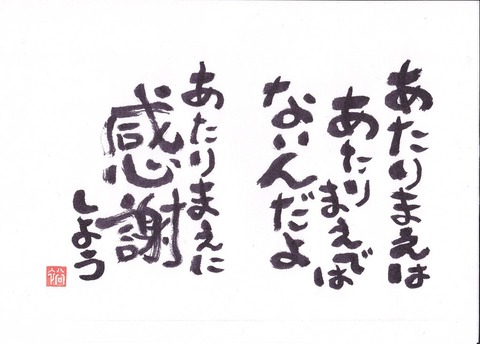 あたりまえは
あたり
まえでは
ないんだよ
あたりまえに
感謝
しよう